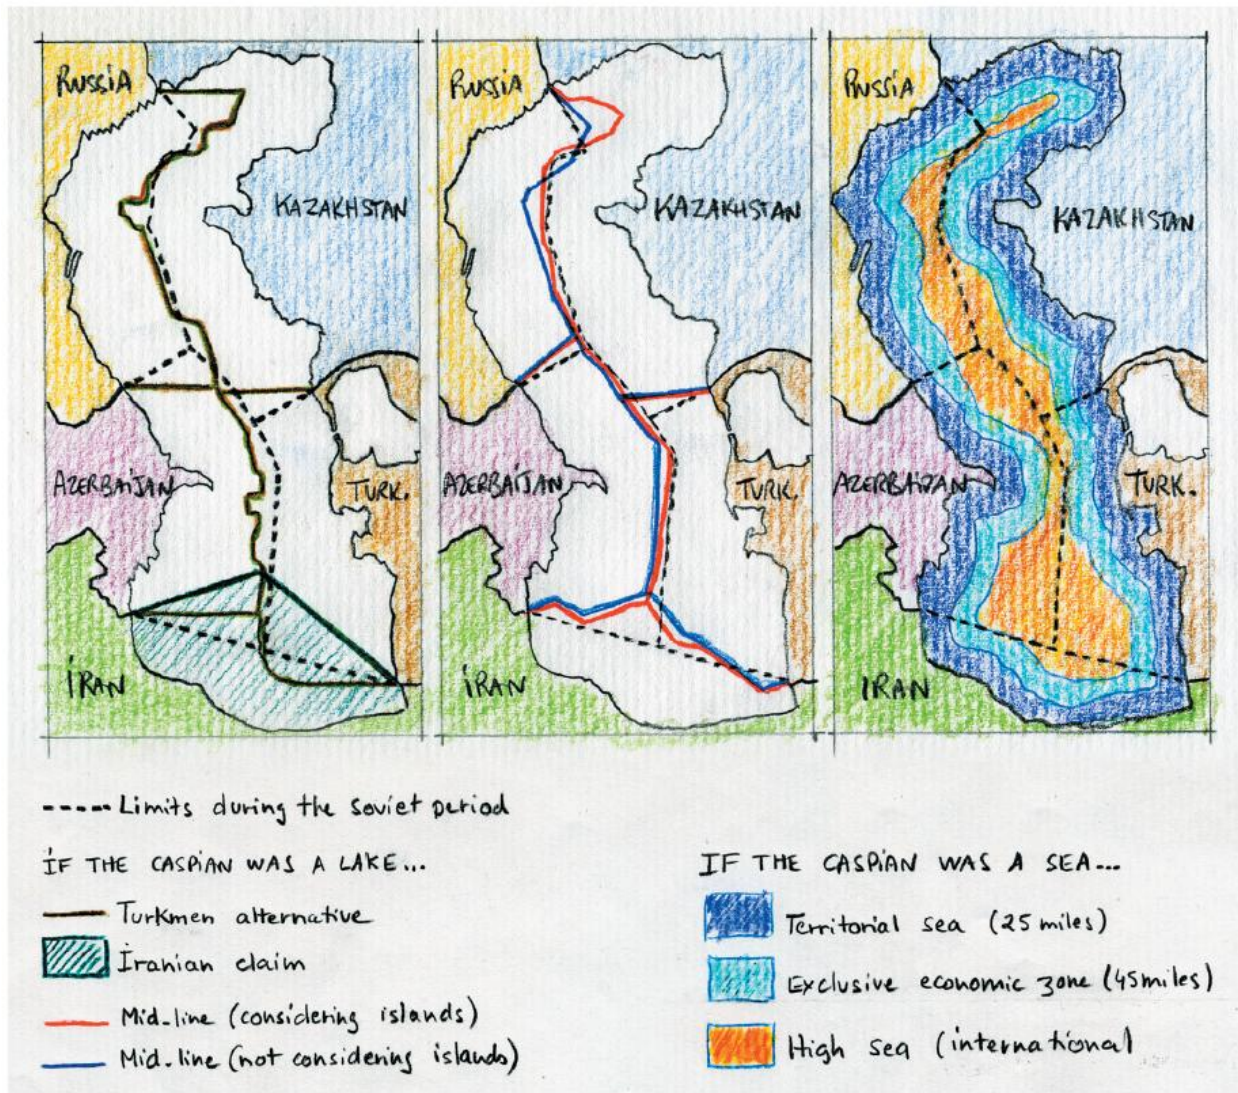 RUSSIA
KAZAKHSTAN
AZERBAIJAN
TURK.
IRAN
RUSSIA
KAZAKHSTAN
AZERBAIJAN
TURK.
IRAN
RUSSIA
KAZAKHSTAN
AZERBAIJAN
TURK.
IRAN
Limits during the soviet period
IF THE CASPIAN WAS A LAKE...
Turkmen alternative
Iranian claim
Mid-line (considering islands)
Mid-line (not considering islands)
IF THE CASPIAN WAS A SEA...
Territorial sea (25 miles)
Exclusive economic zone (45 miles)
High sea (international